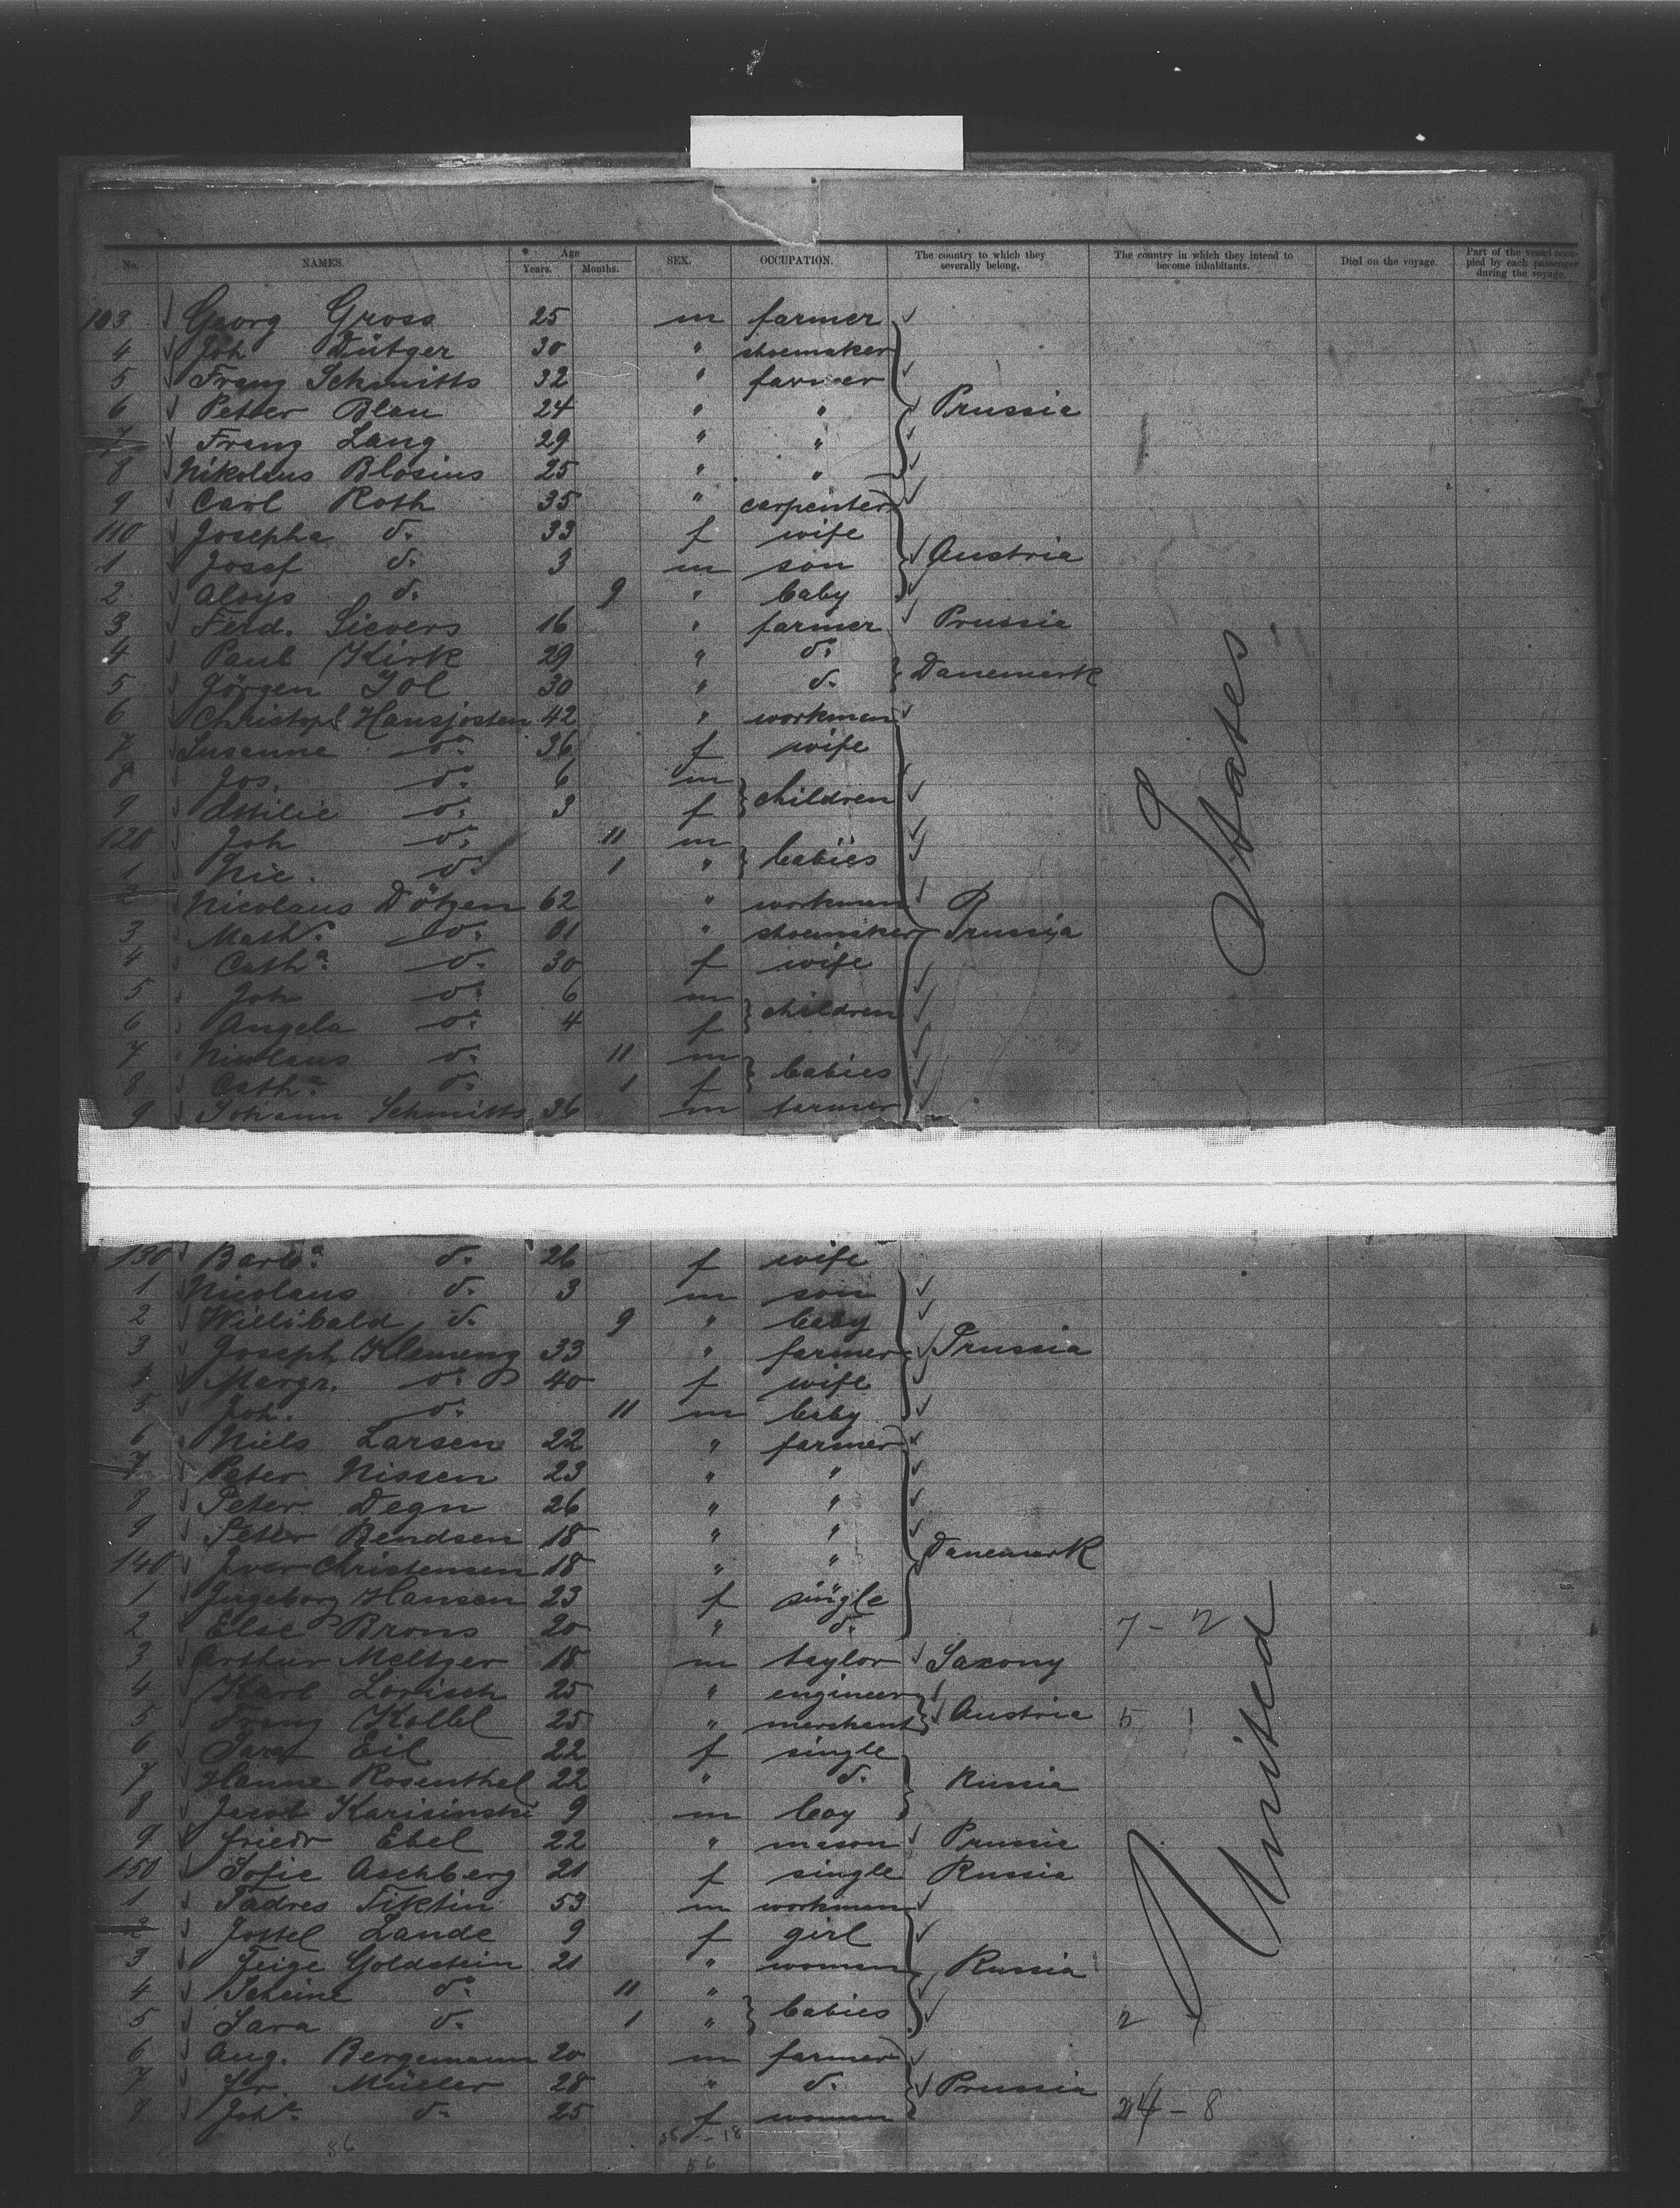 No. NAMES. Age Years. Months. SEX. OCCUPATION. The country to which they severally belong. The country in which they intend to become inhabitants. Died on the voyage. Part of the vessel occupied by each passenger during the voyage.
103 Georg Gross 25 m farmer
4 Joh Dütger 30 " shoemaker
5 Franz Schmitts 32 " farmer
6 Peter Blau 24 " " Prussia
7 Franz Lang 29 " "
8 Nikolaus Blasius 25 " "
9 Carl Roth 35 " carpenter
110 Josepha do. 33 f wife
1 Josef do. 3 m son Austria
2 Aloys do. 9 " baby
3 Ferd. Sievers 16 " farmer Prussia
4 Paul Kirk 29 " do.
5 Jörgen Jol 30 " do. Danemark
6 Christoph Hansjosten 42 " workman
7 Susanne do. 36 f wife
8 Jos. do. 6 m
9 Ottilie do. 3 f children
120 Joh do. 11 m
1 Nic. do. 1 " babies
2 Nicolaus Dötzen 62 " workman
3 Math. do. 31 " shoemaker Prussia
4 Catha. do. 30 f wife
5 Joh do. 6 m
6 Angela do. 4 f children
7 Nicolaus do. 11 m
8 Catha. do. 1 f babies
9 Johann Schmitts 36 m farmer
States
130 Barba. do. 26 f wife
1 Nicolaus do. 3 m son
2 Willibald do. 9 " baby
3 Joseph Klemenz 33 " farmer Prussia
4 Margr. do. 40 f wife
5 Joh. do. 11 m baby
6 Niels Larsen 22 " farmer
7 Peter Nissen 23 " "
8 Peter Degn 26 " "
9 Peter Bendsen 18 " "
140 Iver Christensen 18 " " Danemark
1 Ingeborg Hansen 23 f single
2 Else Brons 20 " do. 7 - 2
3 Arthur Meltzer 18 m taylor Saxony
4 Karl Lorisch 25 " engineer
5 Franz Kollel 25 " merchant Austria 5 1
6 Sara Eil 22 f single
7 Hanne Rosenthal 22 " do. Russia
8 Jacob Karisinski 9 m boy
9 Friedr Ebel 22 " mason Prussia
150 Sofie Aschberg 21 f single Russia
1 Tadres Siktin 53 m workman
2 Jostel Lande 9 f girl
3 Feige Goldstein 21 " woman Russia
4 Scheine do. 11 "
5 Sara do. 1 " babies 2
6 Aug. Bergemann 20 m farmer
7 Fr. Müller 28 " do. Prussia
8 Joha. do. 25 f woman 24 - 8
United
56